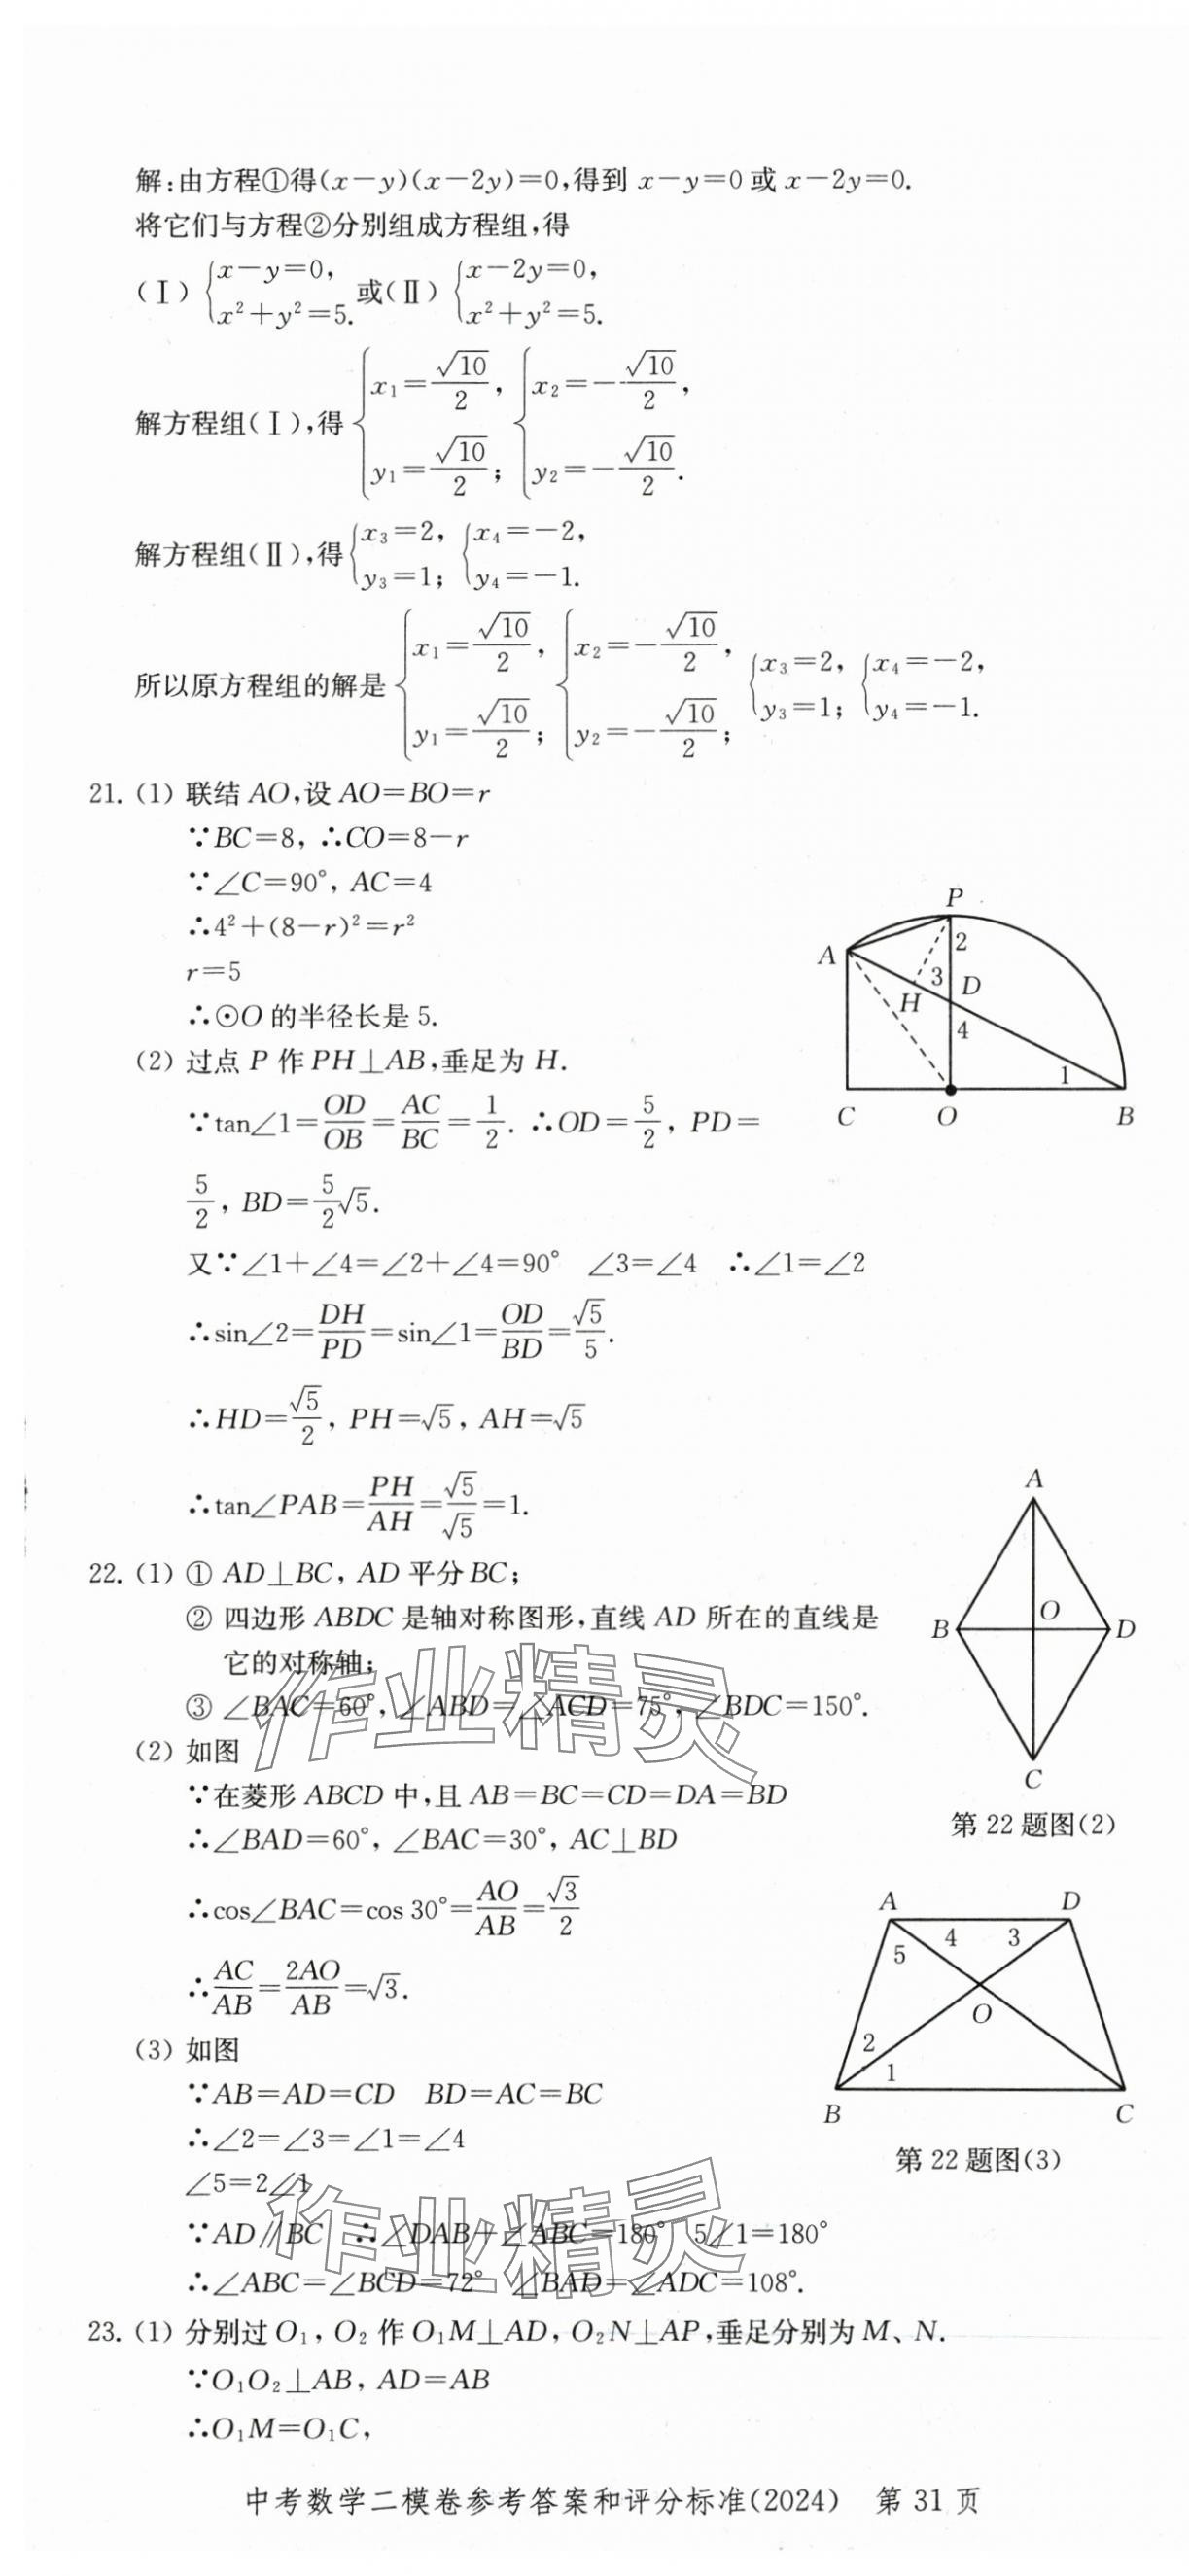 解:由方程①得(x－y)(x－2y)=0,得到 x－y=0 或 x－2y=0.
将它们与方程②分别组成方程组,得
(Ⅰ) {x－y=0, x²+y²=5. 或(Ⅱ) {x－2y=0, x²+y²=5.
解方程组(Ⅰ),得 {x₁=√10/2, y₁=√10/2; {x₂=－√10/2, y₂=－√10/2.
解方程组(Ⅱ),得 {x₃=2, y₃=1; {x₄=－2, y₄=－1.
所以原方程组的解是 {x₁=√10/2, y₁=√10/2; {x₂=－√10/2, y₂=－√10/2; {x₃=2, y₃=1; {x₄=－2, y₄=－1.
21. (1) 联结 AO,设 AO=BO=r
∵BC=8, ∴CO=8－r
∵∠C=90°, AC=4
∴4²+(8－r)²=r²
r=5
∴⊙O 的半径长是 5.
(2) 过点 P 作 PH⊥AB,垂足为 H.
∵tan∠1=OD/OB=AC/BC=1/2. ∴OD=5/2, PD=
5/2, BD=5/2√5.
又∵∠1+∠4=∠2+∠4=90° ∠3=∠4 ∴∠1=∠2
∴sin∠2=DH/PD=sin∠1=OD/BD=√5/5.
∴HD=√5/2, PH=√5, AH=√5
∴tan∠PAB=PH/AH=√5/√5=1.
P
A
2
3
D
H
4
1
C
O
B
22. (1) ① AD⊥BC, AD 平分 BC;
② 四边形 ABDC 是轴对称图形,直线 AD 所在的直线是
它的对称轴;
③ ∠BAC=60°, ∠ABD=∠ACD=75°, ∠BDC=150°.
(2) 如图
∵在菱形 ABCD 中,且 AB=BC=CD=DA=BD
∴∠BAD=60°, ∠BAC=30°, AC⊥BD
∴cos∠BAC=cos 30°=AO/AB=√3/2
∴AC/AB=2AO/AB=√3.
A
O
B
D
C
第 22 题图(2)
(3) 如图
∵AB=AD=CD BD=AC=BC
∴∠2=∠3=∠1=∠4
∠5=2∠1
∵AD∥BC ∴∠DAB+∠ABC=180° 5∠1=180°
∴∠ABC=∠BCD=72° ∠BAD=∠ADC=108°.
A
D
4
3
5
O
2
1
B
C
第 22 题图(3)
23. (1) 分别过 O₁, O₂ 作 O₁M⊥AD, O₂N⊥AP,垂足分别为 M、N.
∵O₁O₂⊥AB, AD=AB
∴O₁M=O₁C,
中考数学二模卷参考答案和评分标准(2024) 第 31 页
作业精灵
作业精灵